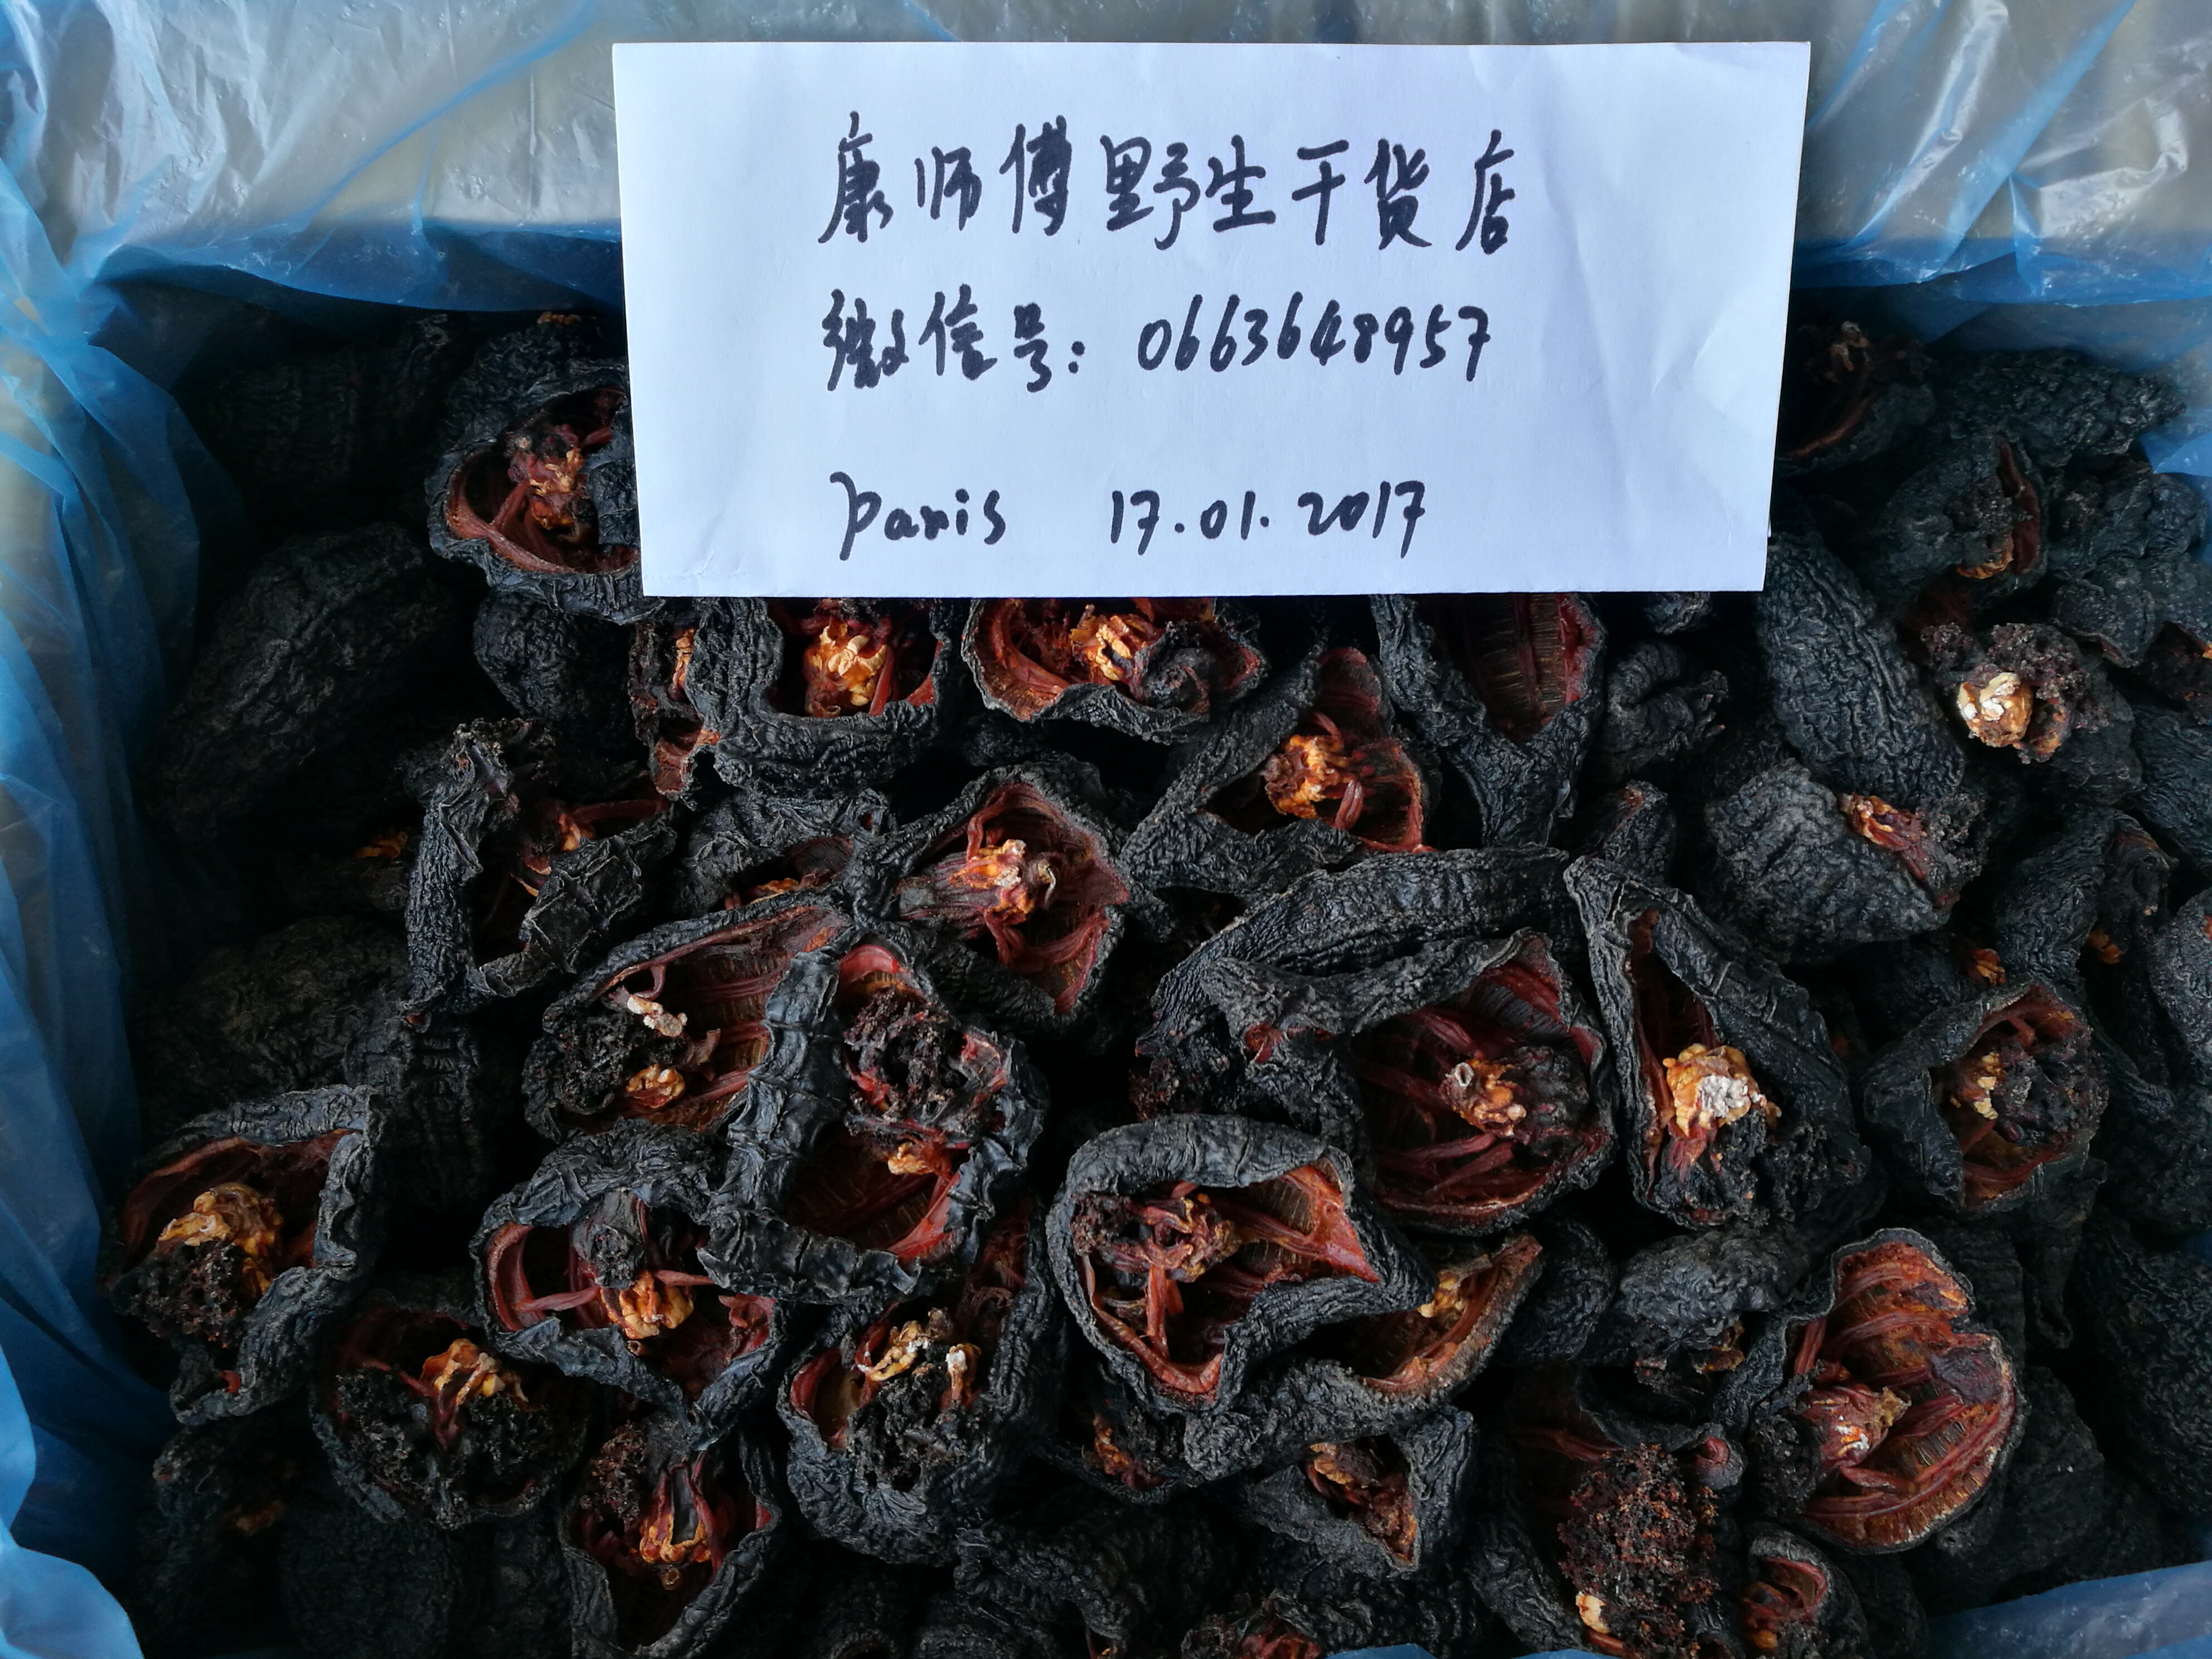 康师傅野生干货店
微信号：0663648957
Paris 17.01.2017